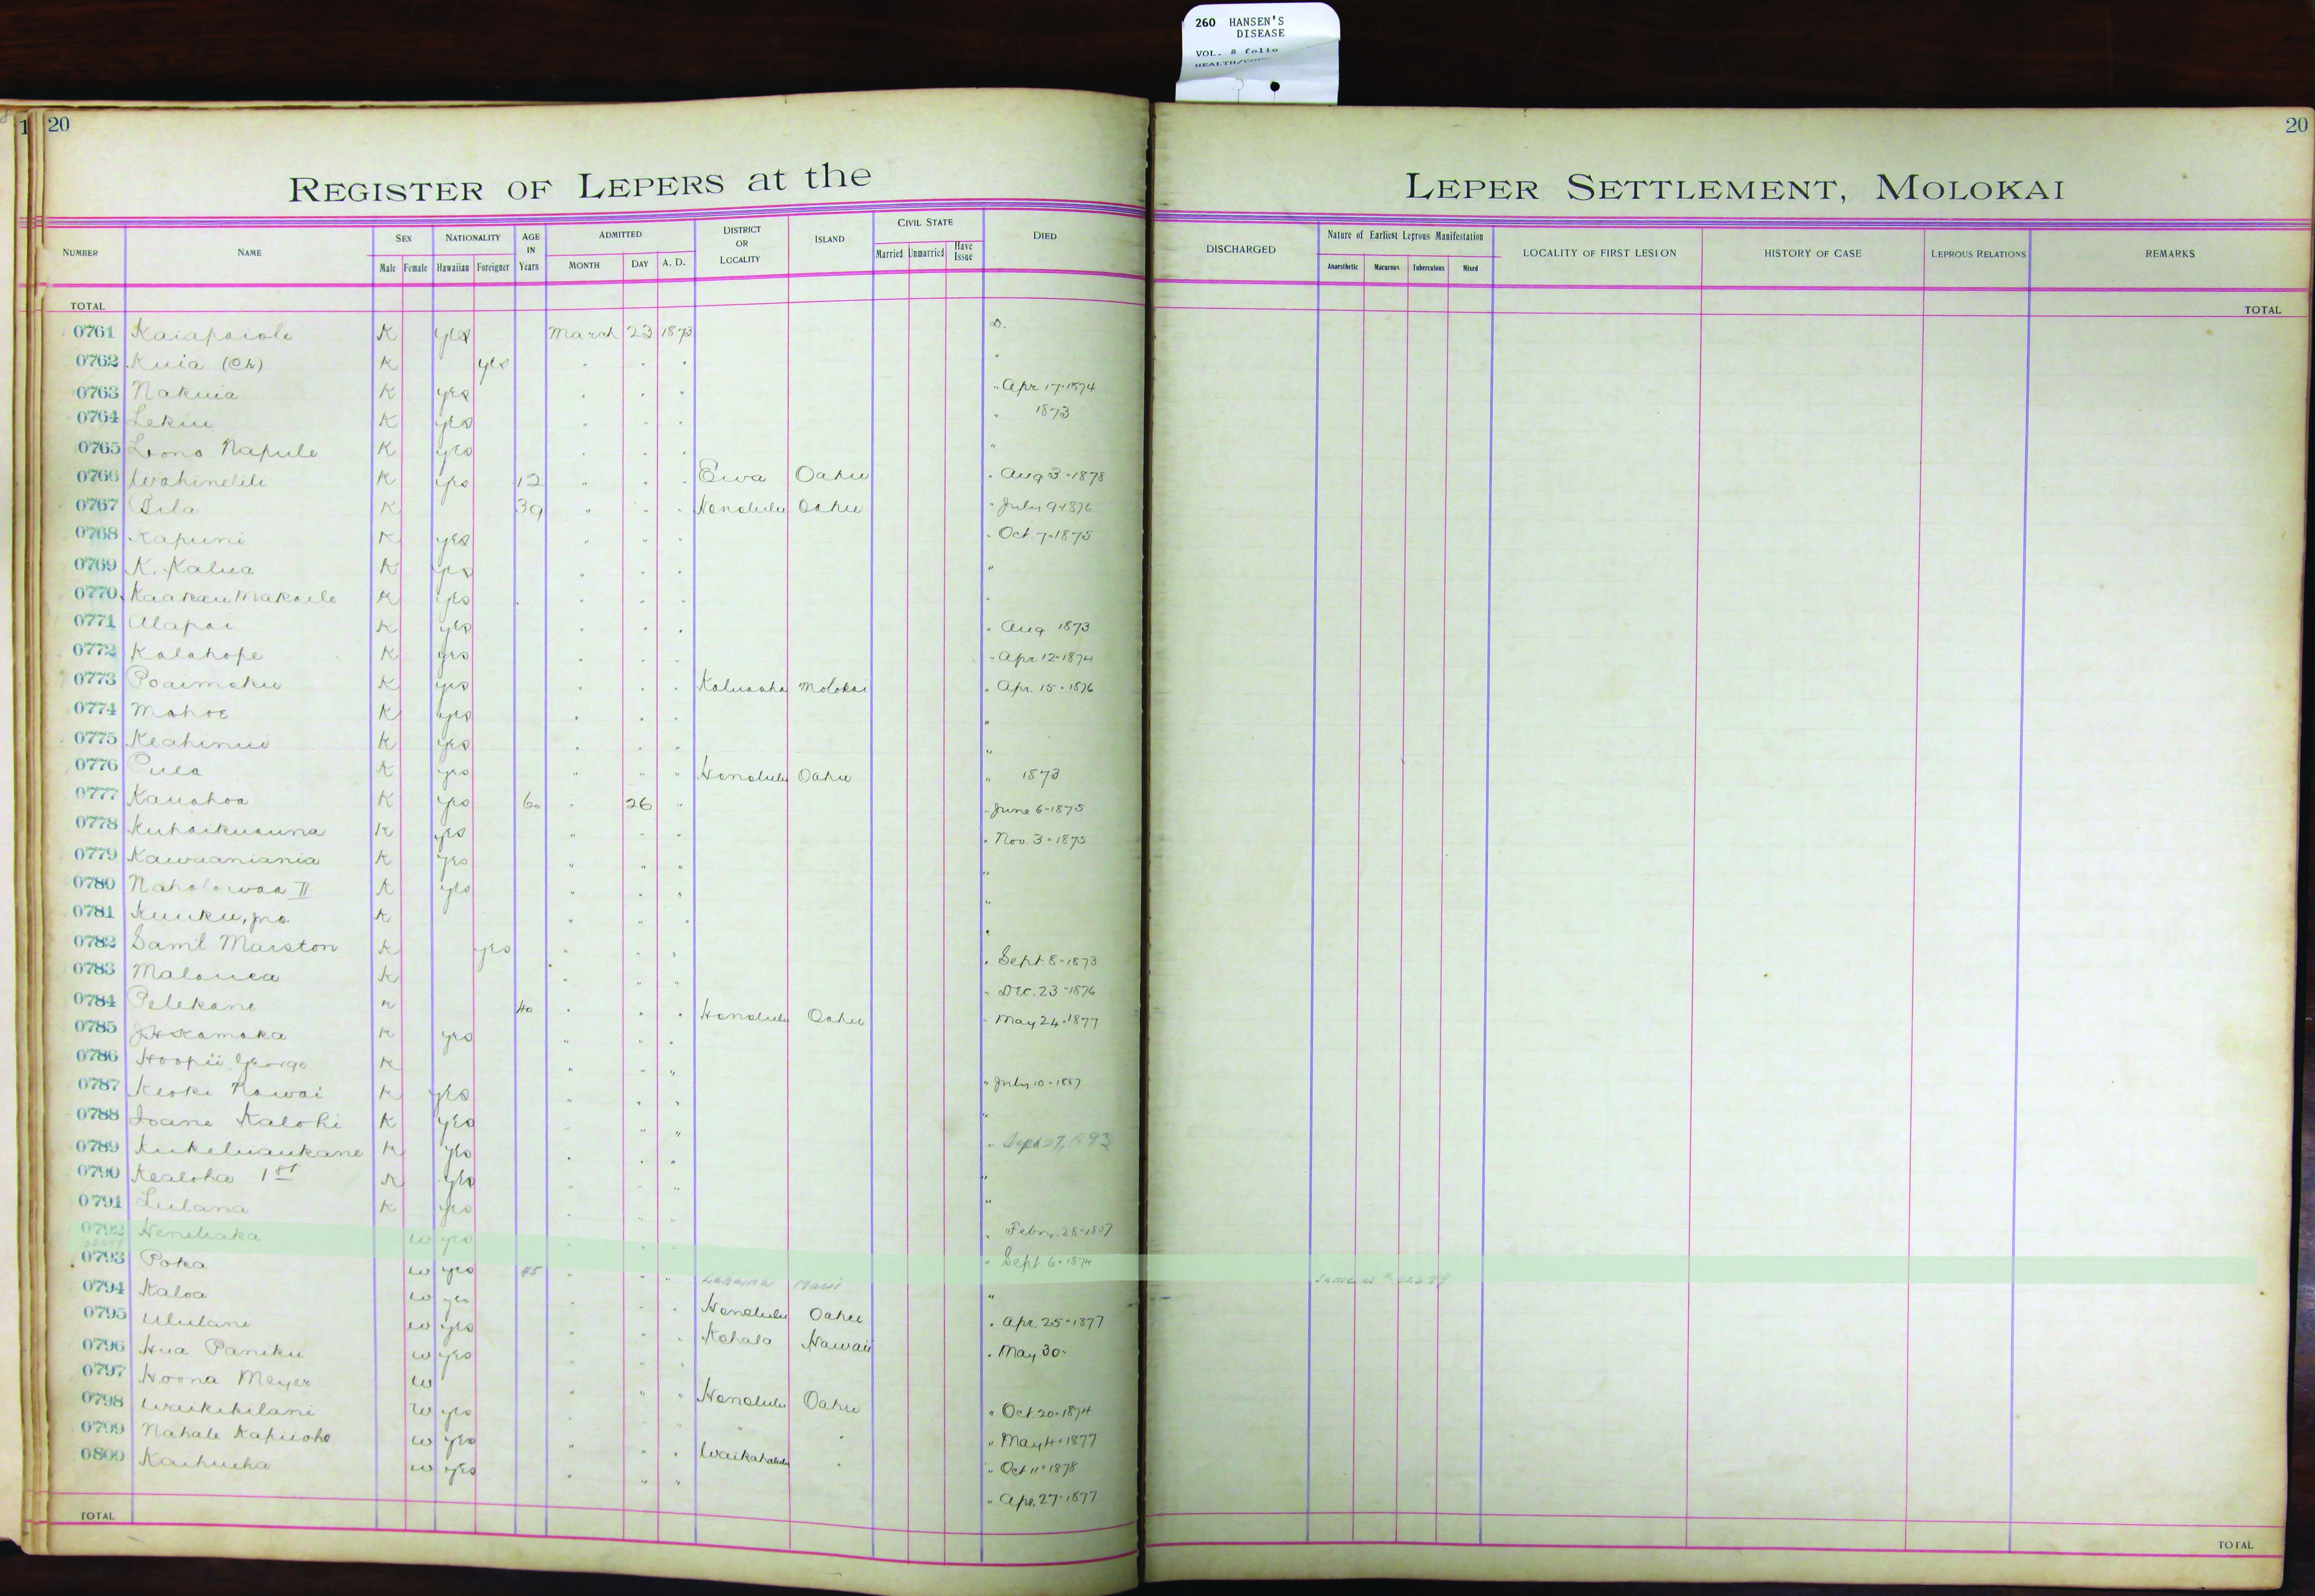 260 HANSEN'S
DISEASE
VOL. 8 folio
20
20
REGISTER OF LEPERS at the LEPER SETTLEMENT, MOLOKAI
NUMBER NAME SEX NATIONALITY AGE IN Years ADMITTED DISTRICT OR LOCALITY ISLAND CIVIL STATE DIED DISCHARGED Nature of Earliest Leprous Manifestation LOCALITY OF FIRST LESION HISTORY OF CASE LEPROUS RELATIONS REMARKS
Male Female Hawaiian Foreigner MONTH DAY A. D. Married Unmarried Have Issue Anaesthetic Macurous Tuberculous Mixed
TOTAL TOTAL
0761 Kaiapaiole K yes March 23 1873 D.
0762 Kuia (Ch) K yes
0763 Nakuia K yes " Apr 17-1874
0764 Lekiu K yes " 1873
0765 Lono Napule K yes "
0766 Wahinelili K yes 12 " " " Ewa Oahu " Aug 3-1878
0767 Pila K 39 " " " Honolulu Oahu " July 9-1876
0768 Kapuni K yes " Oct. 7-1875
0769 K. Kalua K yes "
0770 Kaakau Makaele K yes "
0771 Alapai K yes " Aug 1873
0772 Kalahope K yes " Apr. 12-1874
0773 Poaimoku K yes Kaluaaha Molokai " Apr. 15-1876
0774 Mahoe K yes "
0775 Keahinui K yes "
0776 Pulea K yes " " " Honolulu Oahu " 1873
0777 Kauahoa K yes 60 " 26 " " June 6-1875
0778 Kuhaikuauna K yes " Nov. 3-1875
0779 Kawaaniania K yes "
0780 Naholowaa II K yes "
0781 Kuuku, jno. K "
0782 Saml Marston K yes " Sept 8-1873
0783 Malouea K " Dec. 23-1876
0784 Pelekane K 40 Honolulu Oahu " May 24-1877
0785 J.H. Kamaka K yes
0786 Hoopii George K " July 10-1887
0787 Keoki Nawai K yes "
0788 Ioane Kalohi K yes " Sept 27, 1893
0789 Kukeluaukane K yes "
0790 Kealoha 1st K yes "
0791 Lulana K yes " Febry. 28-1887
0792 Henehaka w yes " Sept. 6-1874
0793 Poka w yes 45 " " " Lahaina Maui " Same as
0794 Kaloa w yes Honolulu Oahu " Apr. 25-1877
0795 Ululani w yes Kohala Hawaii " May 30-
0796 Hua Paniku w yes
0797 Hoona Meyer w " " " Honolulu Oahu " Oct. 20-1874
0798 Waikikilani w yes " May 4-1877
0799 Nahale Kapuoho w yes " " " Waikahalulu " " Oct 11-1878
0800 Kaihueha w yes " Apr. 27-1877
TOTAL TOTAL